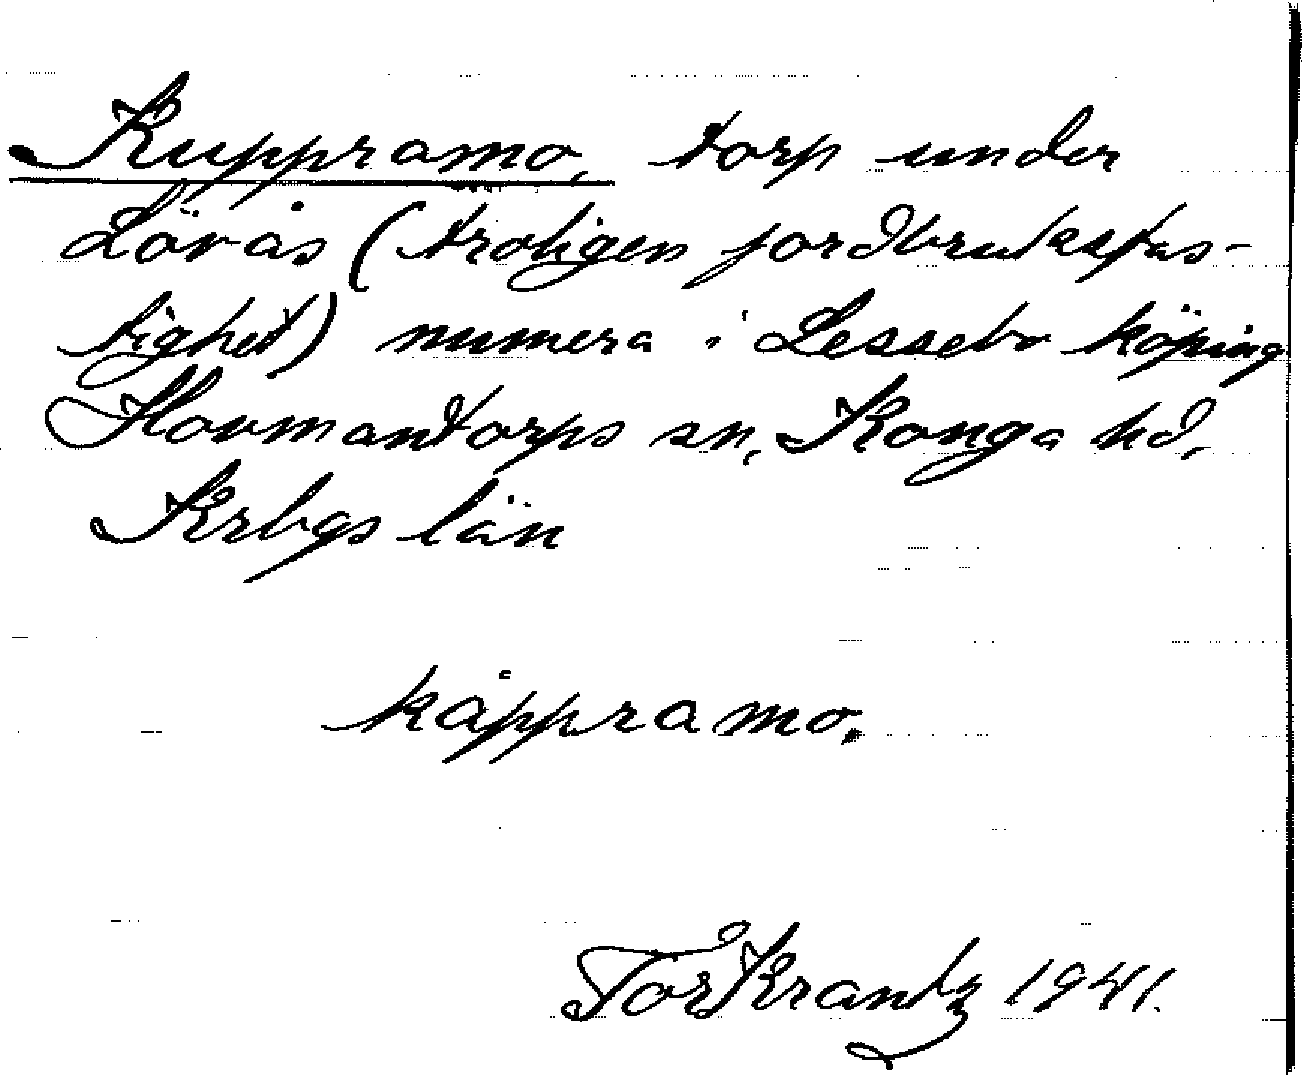 Kuppramo, torp under
Lövås (troligen jordbruksfas-
tighet) numera i Lessebo köping
Hovmantorps sn, Konga hd,
Krbgs län
kåppramo.
Tor Krantz 1941.